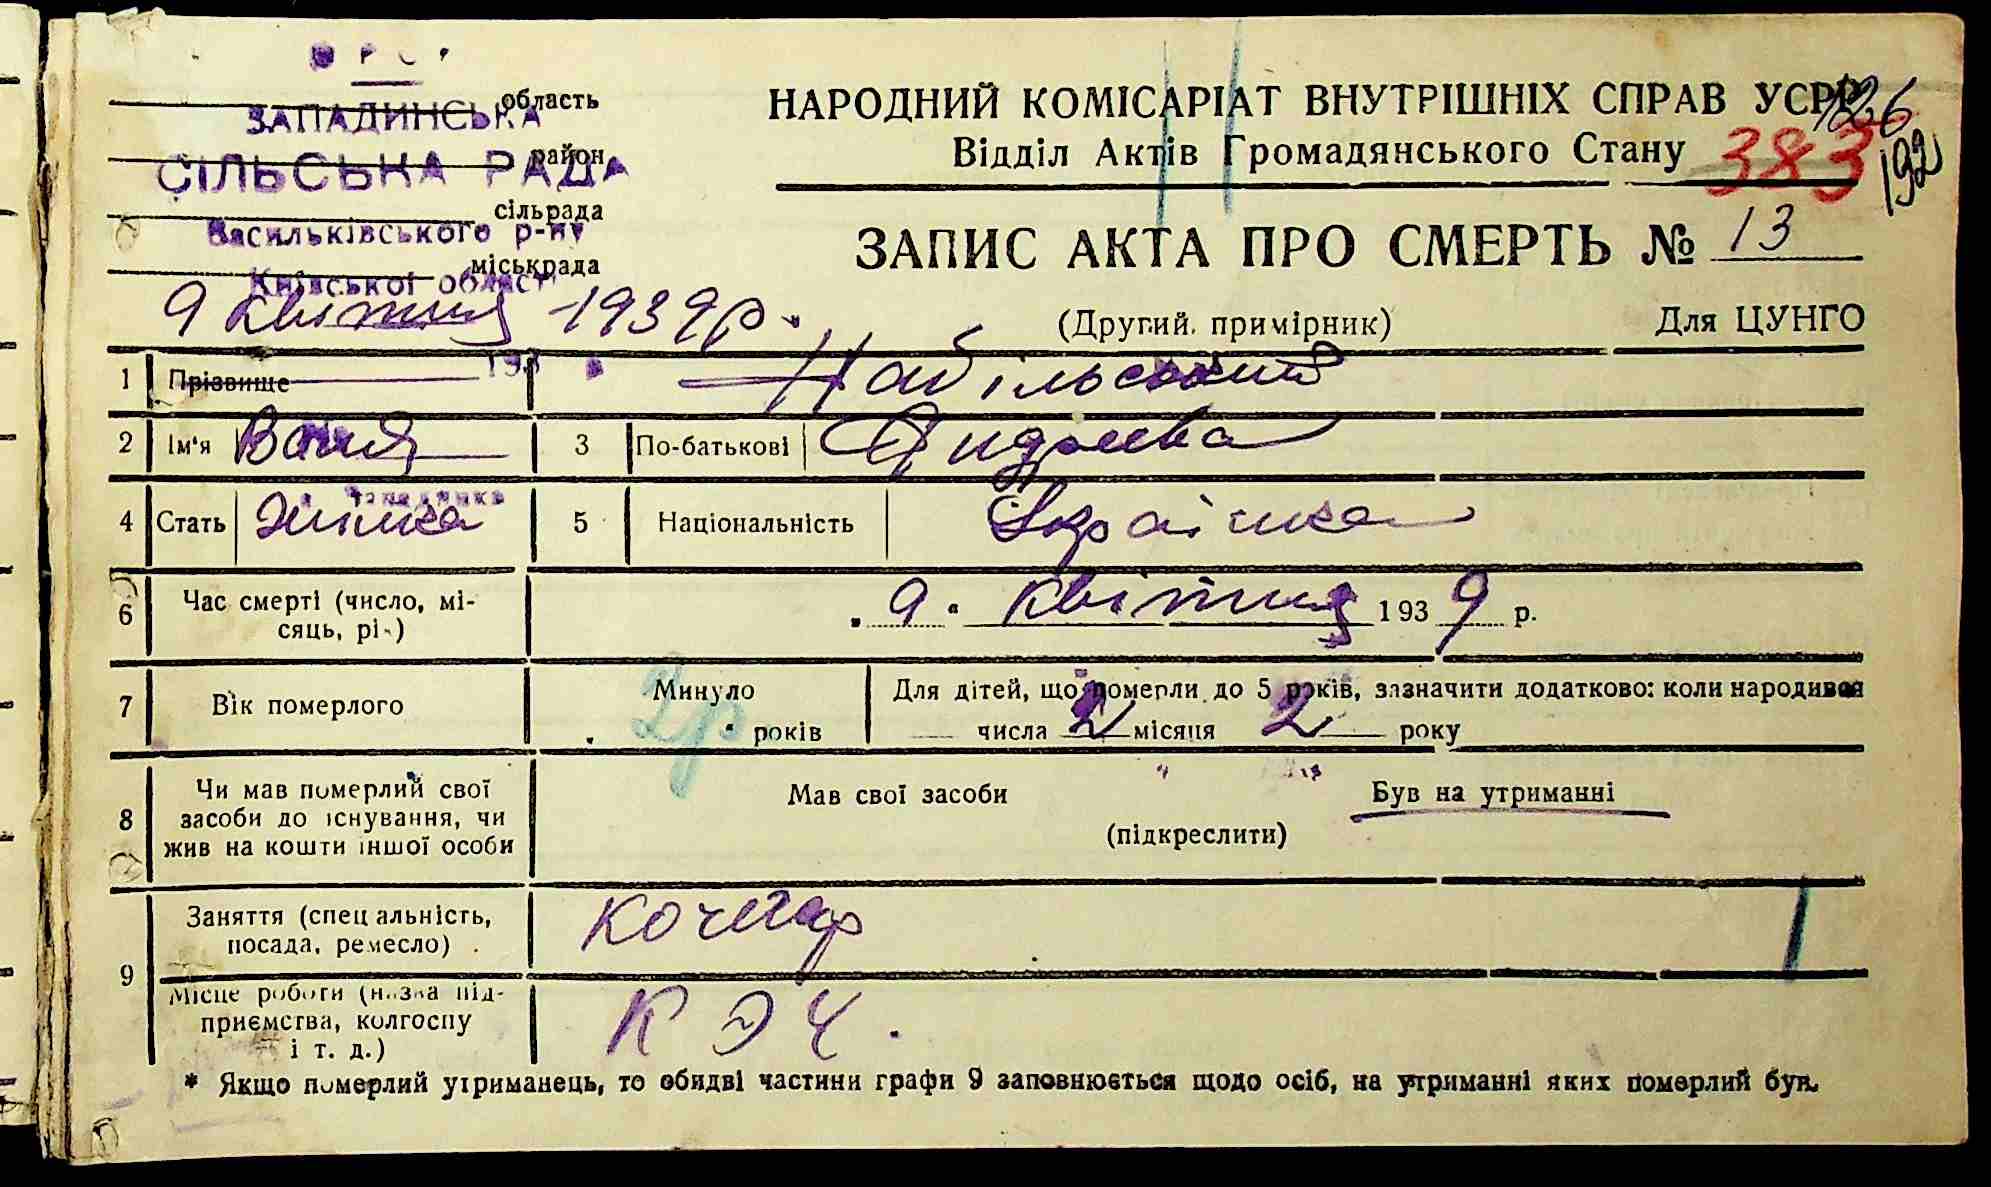 УРСР
ЗАПАДИНСЬКА
СІЛЬСЬКА РАДА
Васильківського р-ну
Київської області
область
район
сільрада
міськрада
9 квітня 1939 р.
193
НАРОДНИЙ КОМІСАРІАТ ВНУТРІШНІХ СПРАВ УСРР
Відділ Актів Громадянського Стану
126
383
192
ЗАПИС АКТА ПРО СМЕРТЬ № 13
(Другий примірник) Для ЦУНГО
1 Прізвище Набільський
2 Ім'я Ваня 3 По-батькові
4 Стать Жінка 5 Національність Українка
6 Час смерті (число, мі-
сяць, рік) 9 квітня 1939 р.
7 Вік померлого Минуло 2р років Для дітей, що померли до 5 років, зазначити додатково: коли народився
числа 2 місяця 2 року
8 Чи мав померлий свої
засоби до існування, чи
жив на кошти іншої особи
Мав свої засоби Був на утриманні
(підкреслити)
9 Заняття (спеціальність,
посада, ремесло) Кочегар
Місце роботи (назва під-
приємства, колгоспу
і т. д.) К Э Ч.
* Якщо померлий утриманець, то обидві частини графи 9 заповнюється щодо осіб, на утриманні яких померлий був.